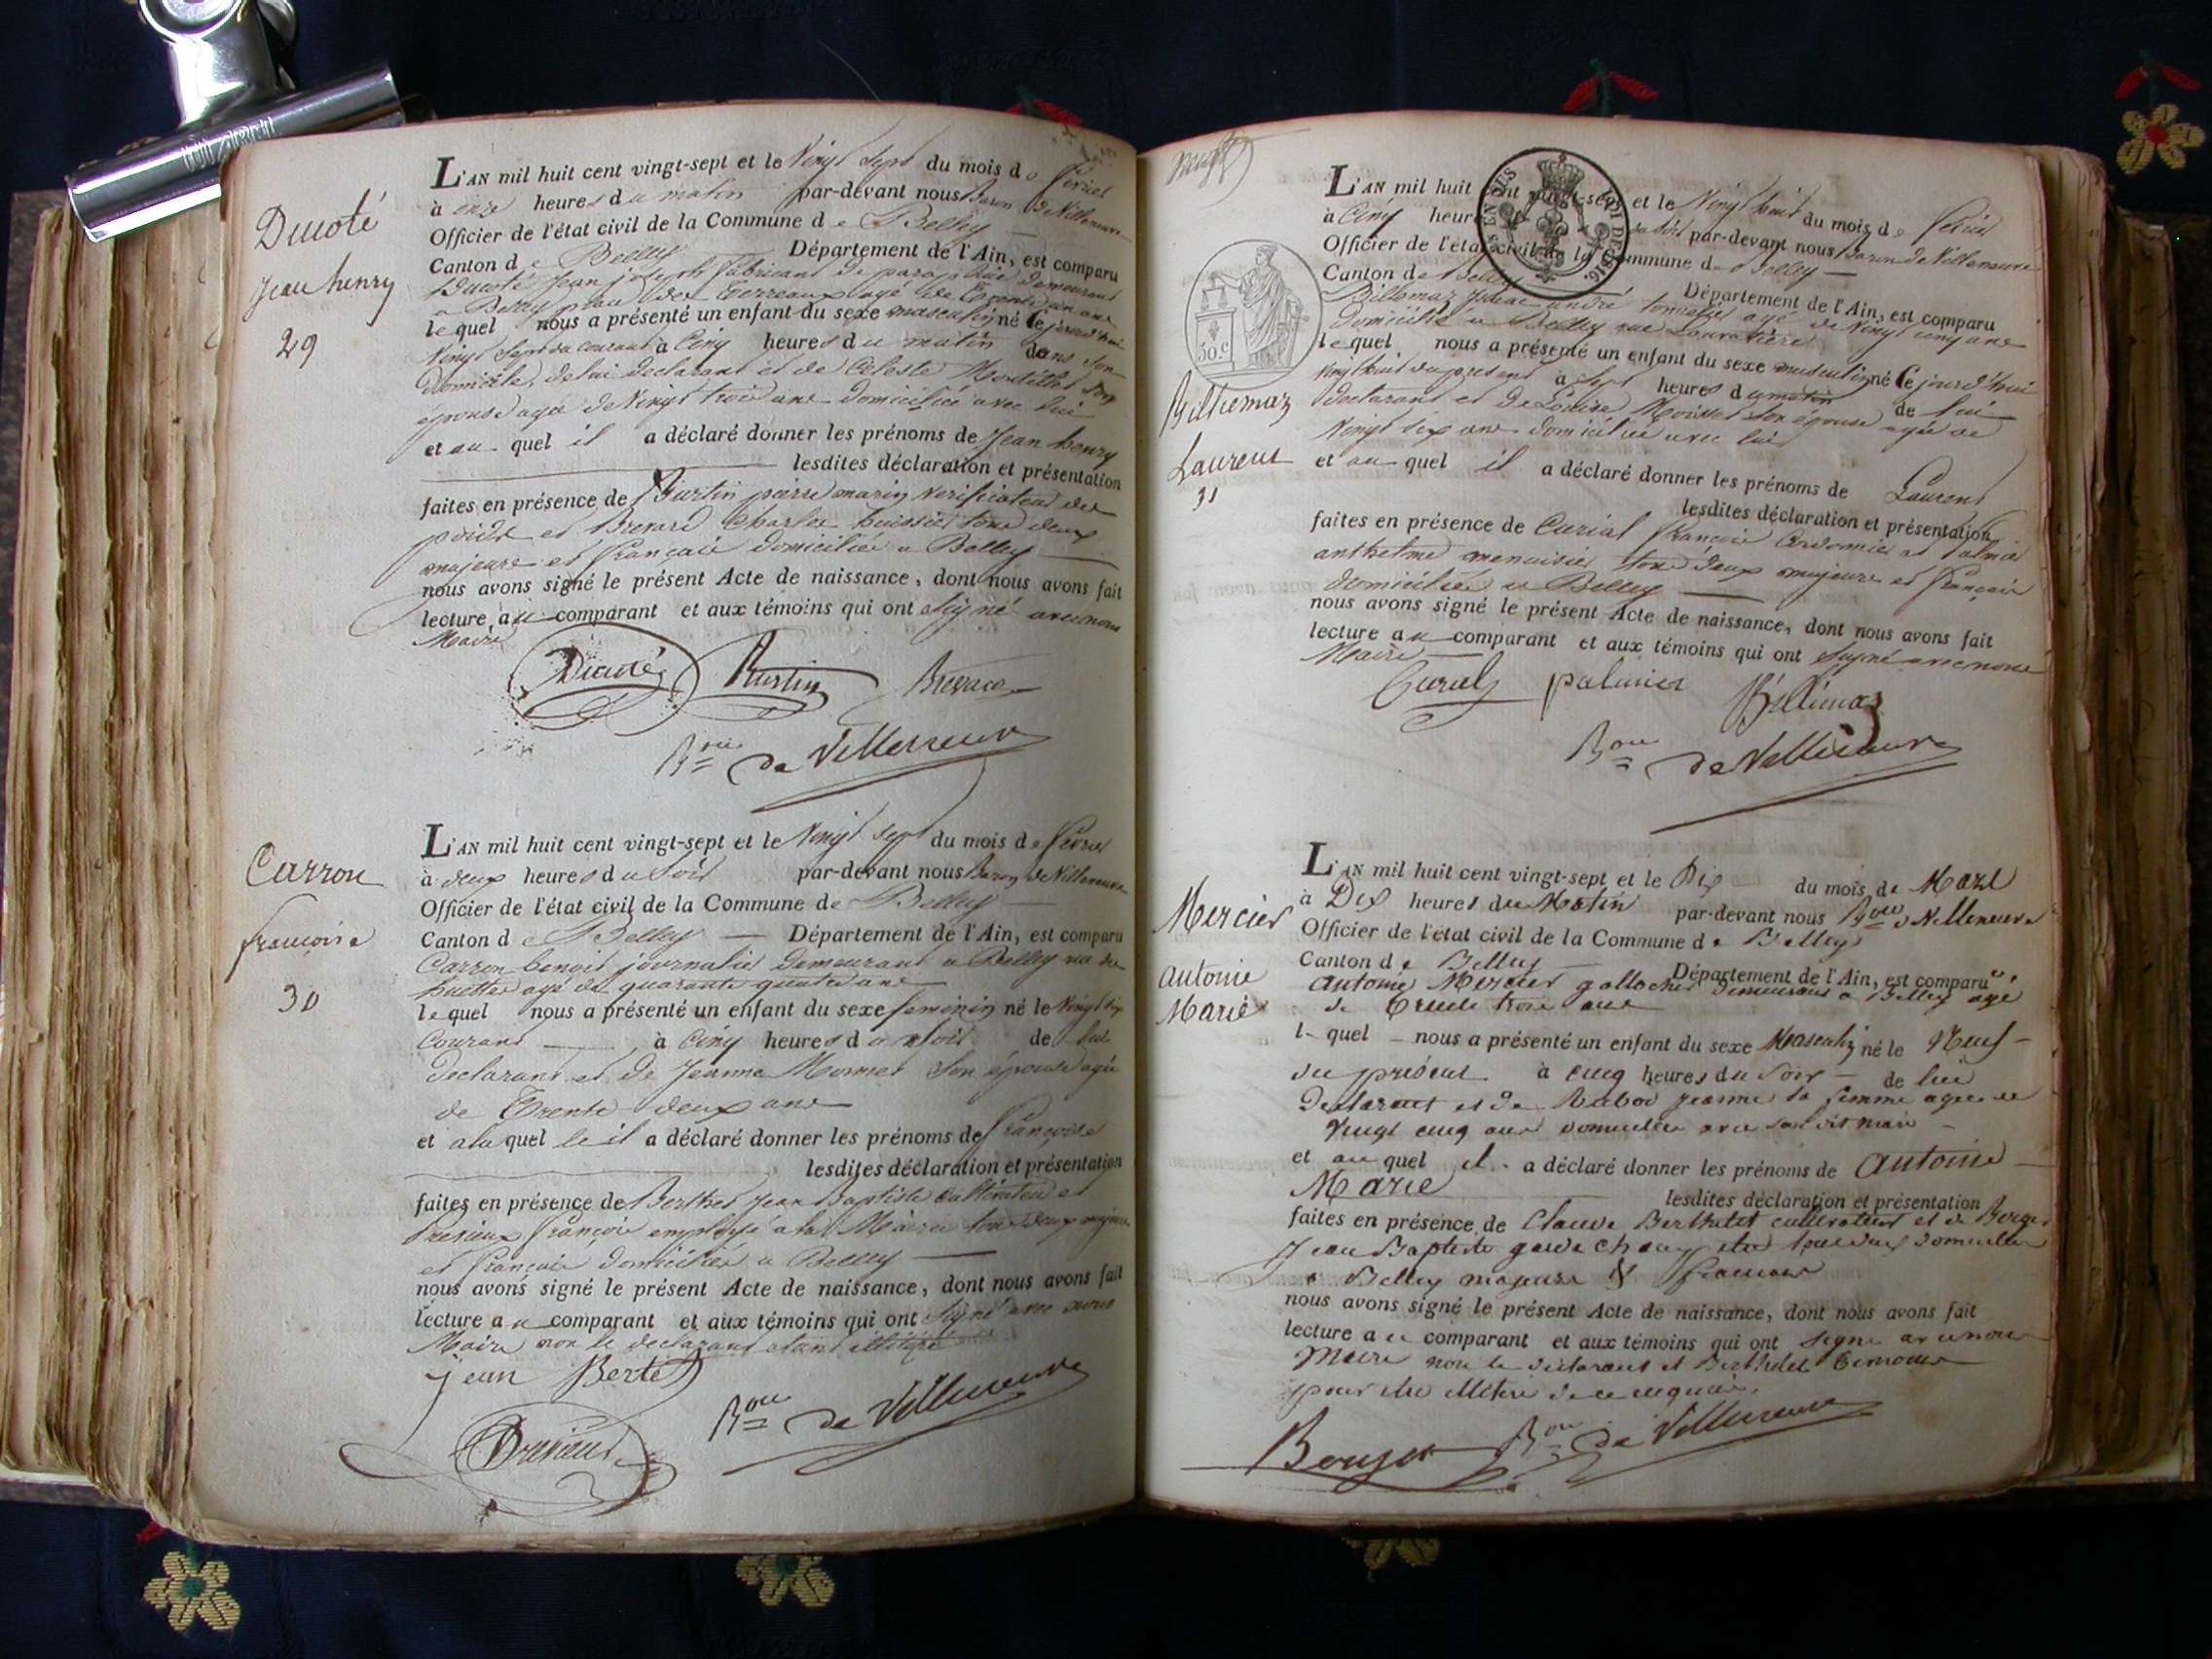 Ducoté
Jean henry
29
L'AN mil huit cent vingt-sept et le Vingt Sept du mois de fevrier
à onze heures du matin par-devant nous Baron De Villeneuve
Officier de l'état civil de la Commune de Belley
Canton de Belley Département de l'Ain, est comparu
Ducoté Jean joseph fabricant de parapluie demeurant
a Belley place des Terreaux agé de Trente un ans
lequel nous a présenté un enfant du sexe masculin né Cejourd'hui
Vingt Sept du courant à Cinq heures du matin dans Son
Domicile, de lui declarant et de Celeste Son
épouse agée de Vingt trois ans domiciliée avec lui
et au quel il a déclaré donner les prénoms de Jean henry
lesdites déclaration et présentation
faites en présence de Burtin pierre marin Verificateur des
poids et Brevard Charles huissier tous deux
majeurs et français domiciliés a Belley
nous avons signé le présent Acte de naissance, dont nous avons fait
lecture au comparant et aux témoins qui ont Signé avec nous
Maire
Ducoté Burtin
Bon de Villeneuve
Carron
francoise
30
L'AN mil huit cent vingt-sept et le Vingt Sept du mois de fevrier
à deux heures du Soir par-devant nous Baron de Villeneuve
Officier de l'état civil de la Commune de Belley
Canton de Belley Département de l'Ain, est comparu
Carron benoit journalier demeurant a Belley rue des
agé de quarante quatre ans
lequel nous a présenté un enfant du sexe feminin né le Vingt Six
Courant à Cinq heures du Soir de lui
declarant et de Jeanne Son épouse agée
de Trente deux ans
et a la quel le il a déclaré donner les prénoms de françoise
lesdites déclaration et présentation
faites en présence de Berthet Jean Baptiste Cultivateur et
françois employé a la Mairie tous deux majeurs
et français domiciliés a Belley
nous avons signé le présent Acte de naissance, dont nous avons fait
lecture au comparant et aux témoins qui ont Signé avec nous
Maire non le declarant étant illitéré
jean Berte
Bon de Villeneuve
30.c
Billiemaz
Laurent
31
L'AN mil huit cent vingt-sept et le Vingt huit du mois de fevrier
à Cinq heures du Soir par-devant nous Baron de Villeneuve
Officier de l'état civil de la Commune de Belley
Canton de Belley Département de l'Ain, est comparu
Billiemaz andré tonnelier agé de Vingt cinq ans
domicilié a Belley rue
lequel nous a présenté un enfant du sexe masculin né Cejourd'hui
Vingt huit du present à Sept heures du matin de lui
declarant et De Louise Son épouse agée de
Vingt Six ans domiciliée avec lui
et au quel il a déclaré donner les prénoms de Laurent
lesdites déclaration et présentation
faites en présence de Curial françois Cordonnier et palmier
anthelme menuisier tous deux majeurs et français
domiciliés a Belley
nous avons signé le présent Acte de naissance, dont nous avons fait
lecture au comparant et aux témoins qui ont Signé avec nous
Maire
Curial palmier Billiemaz
Bon de Villeneuve
Mercier
antoine
Marie
L'AN mil huit cent vingt-sept et le Dix du mois de Mars
à Dix heures du Matin par-devant nous Bon d Villeneuve
Officier de l'état civil de la Commune de Belley
Canton de Belley Département de l'Ain, est comparu
antoine Mercier gallochier demeurant a Belley agé
de Trente trois ans
lequel nous a présenté un enfant du sexe Masculin né le Neuf
du présent à cinq heures du Soir de lui
Declarant et de Jeanne sa femme agee de
Vingt cinq ans domiciliée avec son dit mari
et au quel il a déclaré donner les prénoms de antoine
Marie
lesdites déclaration et présentation
faites en présence de Claude Berthelet cultivateur et de
Jean Baptiste garde tous deux domiciliés
a Belley majeurs & francais
nous avons signé le présent Acte de naissance, dont nous avons fait
lecture au comparant et aux témoins qui ont signé avec nous
Maire non le déclarant et Berthelet témoin
pour etre illiteré de ce requis.
Bon de Villeneuve